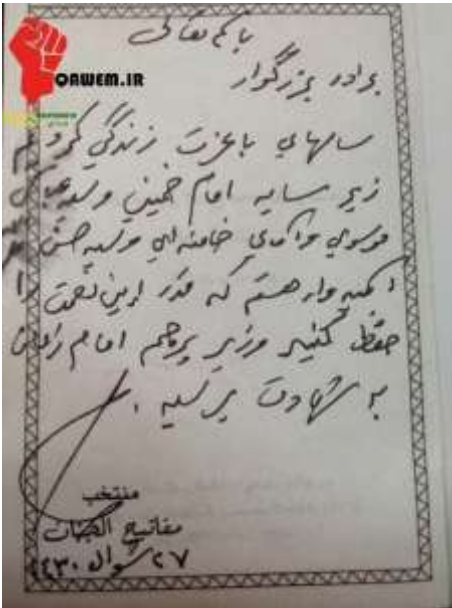 باسمه تعالی
QAWEM.IR
برادر بزرگوار
سالهای با عزت زندگی کردیم
زیر سایه امام خمینی و سید عباس
موسوی و آقای خامنه‌ای و سید حسن
امیدوار هستم که قدر این نعمت را
حفظ کنیم و زیر پرچم امام زمان
به شهادت برسید.
منتخب
مفاتیح الجنان
٢٧ شوال ١٤٣٠